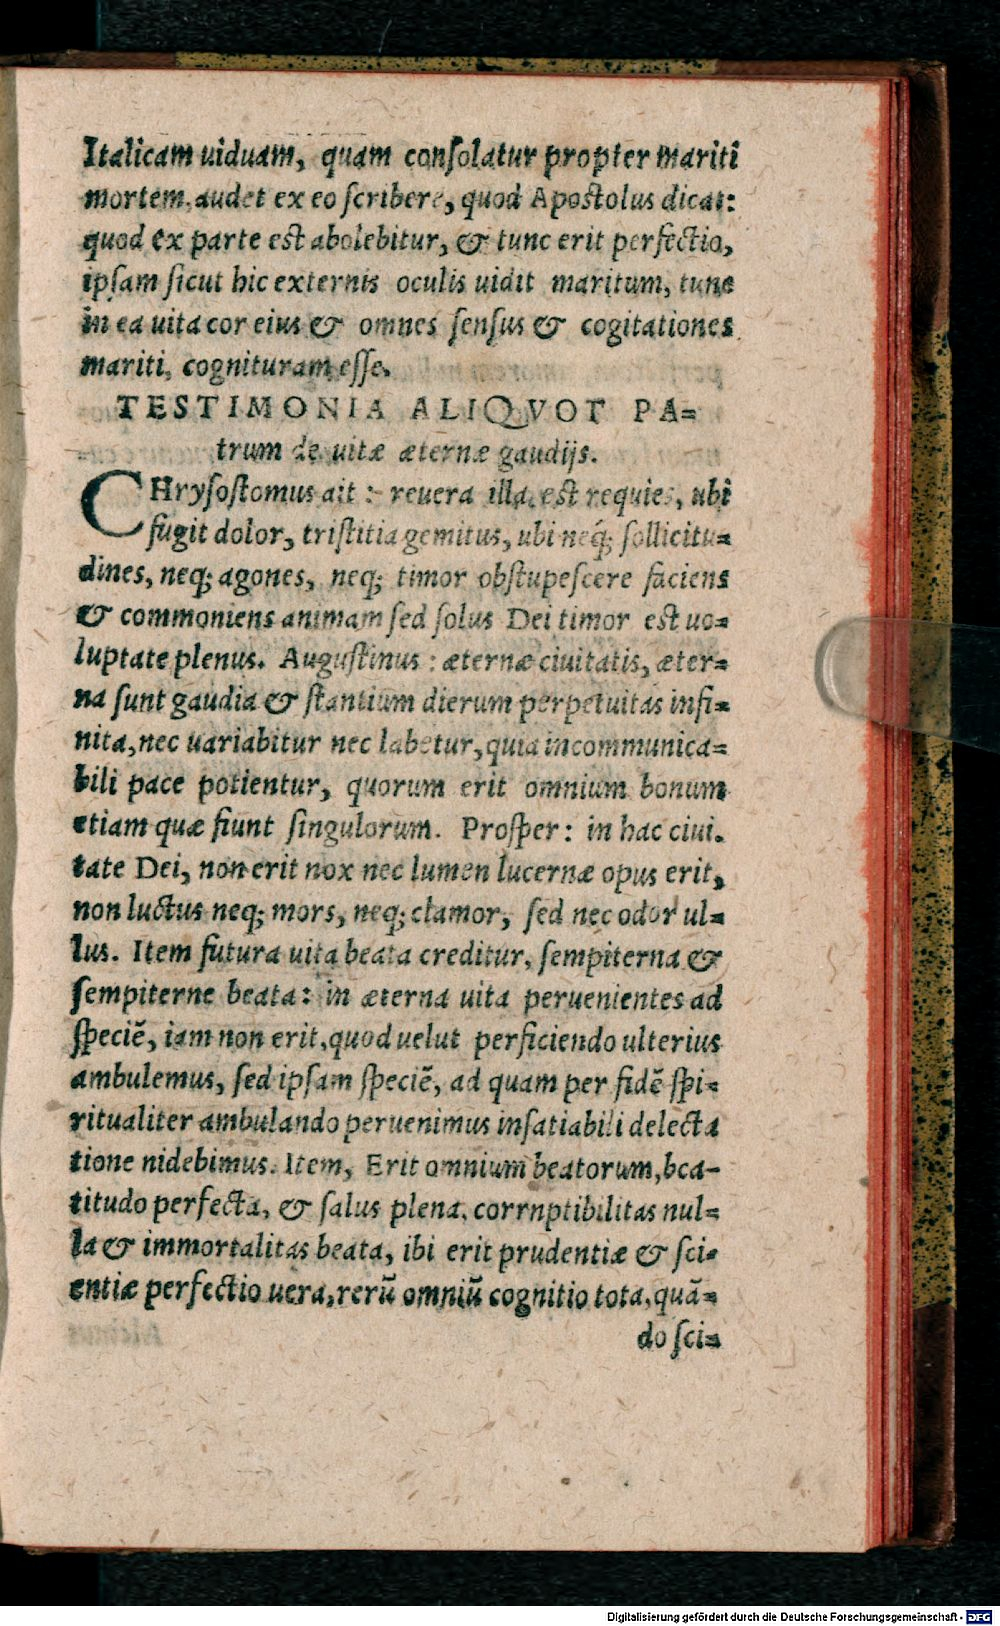 Italicam uiduam, quam conſolatur propter mariti
mortem, audet ex eo ſcribere, quod Apoſtolus dicat:
quod ex parte eſt abolebitur, & tunc erit perfectio,
ipſam ſicut hic externis oculis uidit maritum, tunc
in ea uita cor eius & omnes ſenſus & cogitationes
mariti, cognituram eſſe.
TESTIMONIA ALIQVOT PA=
trum de uitæ æternæ gaudijs.
CHryſoſtomus ait : reuera illa eſt requies, ubi
fugit dolor, triſtitia gemitus, ubi neq́; ſollicitu=
dines, neq; agones, neq; timor obſtupeſcere faciens
& commoniens animam ſed ſolus Dei timor eſt uo=
luptate plenus. Auguſtinus : æternæ ciuitatis, æter=
na ſunt gaudia & ſtantium dierum perpetuitas infi=
nita, nec uariabitur nec labetur, quia incommunica=
bili pace potientur, quorum erit omnium bonum
etiam quæ fiunt ſingulorum. Proſper: in hac ciui.
tate Dei, non erit nox nec lumen lucernæ opus erit,
non luctus neq; mors, neq; clamor, ſed nec odor ul=
lus. Item futura uita beata creditur, ſempiterna &
ſempiterne beata: in æterna uita peruenientes ad
ſpeciẽ, iam non erit, quod uelut perficiendo ulterius
ambulemus, ſed ipſam ſpeciẽ, ad quam per fidẽ ſpi=
ritualiter ambulando peruenimus inſatiabili delecta
tione nidebimus. Item, Erit omnium beatorum, bea-
titudo perfecta, & ſalus plena, corrnptibilitas nul=
la & immortalitas beata, ibi erit prudentiæ & ſci=
entiæ perfectio uera, rerũ omniũ cognitio tota, quã=
do ſci=
Digitalisierung gefördert durch die Deutsche Forschungsgemeinschaft - DFG